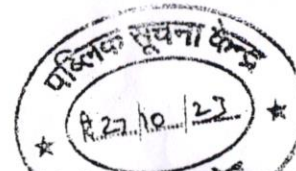 पब्लिक सूचना केन्द्र
दि 27/10/23